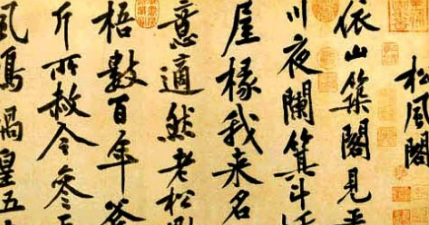 松風閣
依山築閣見平
川夜闌箕斗
屋椽我來名
意適然老松
梧數百年斧
斤所赦今參
風鳴媧皇五